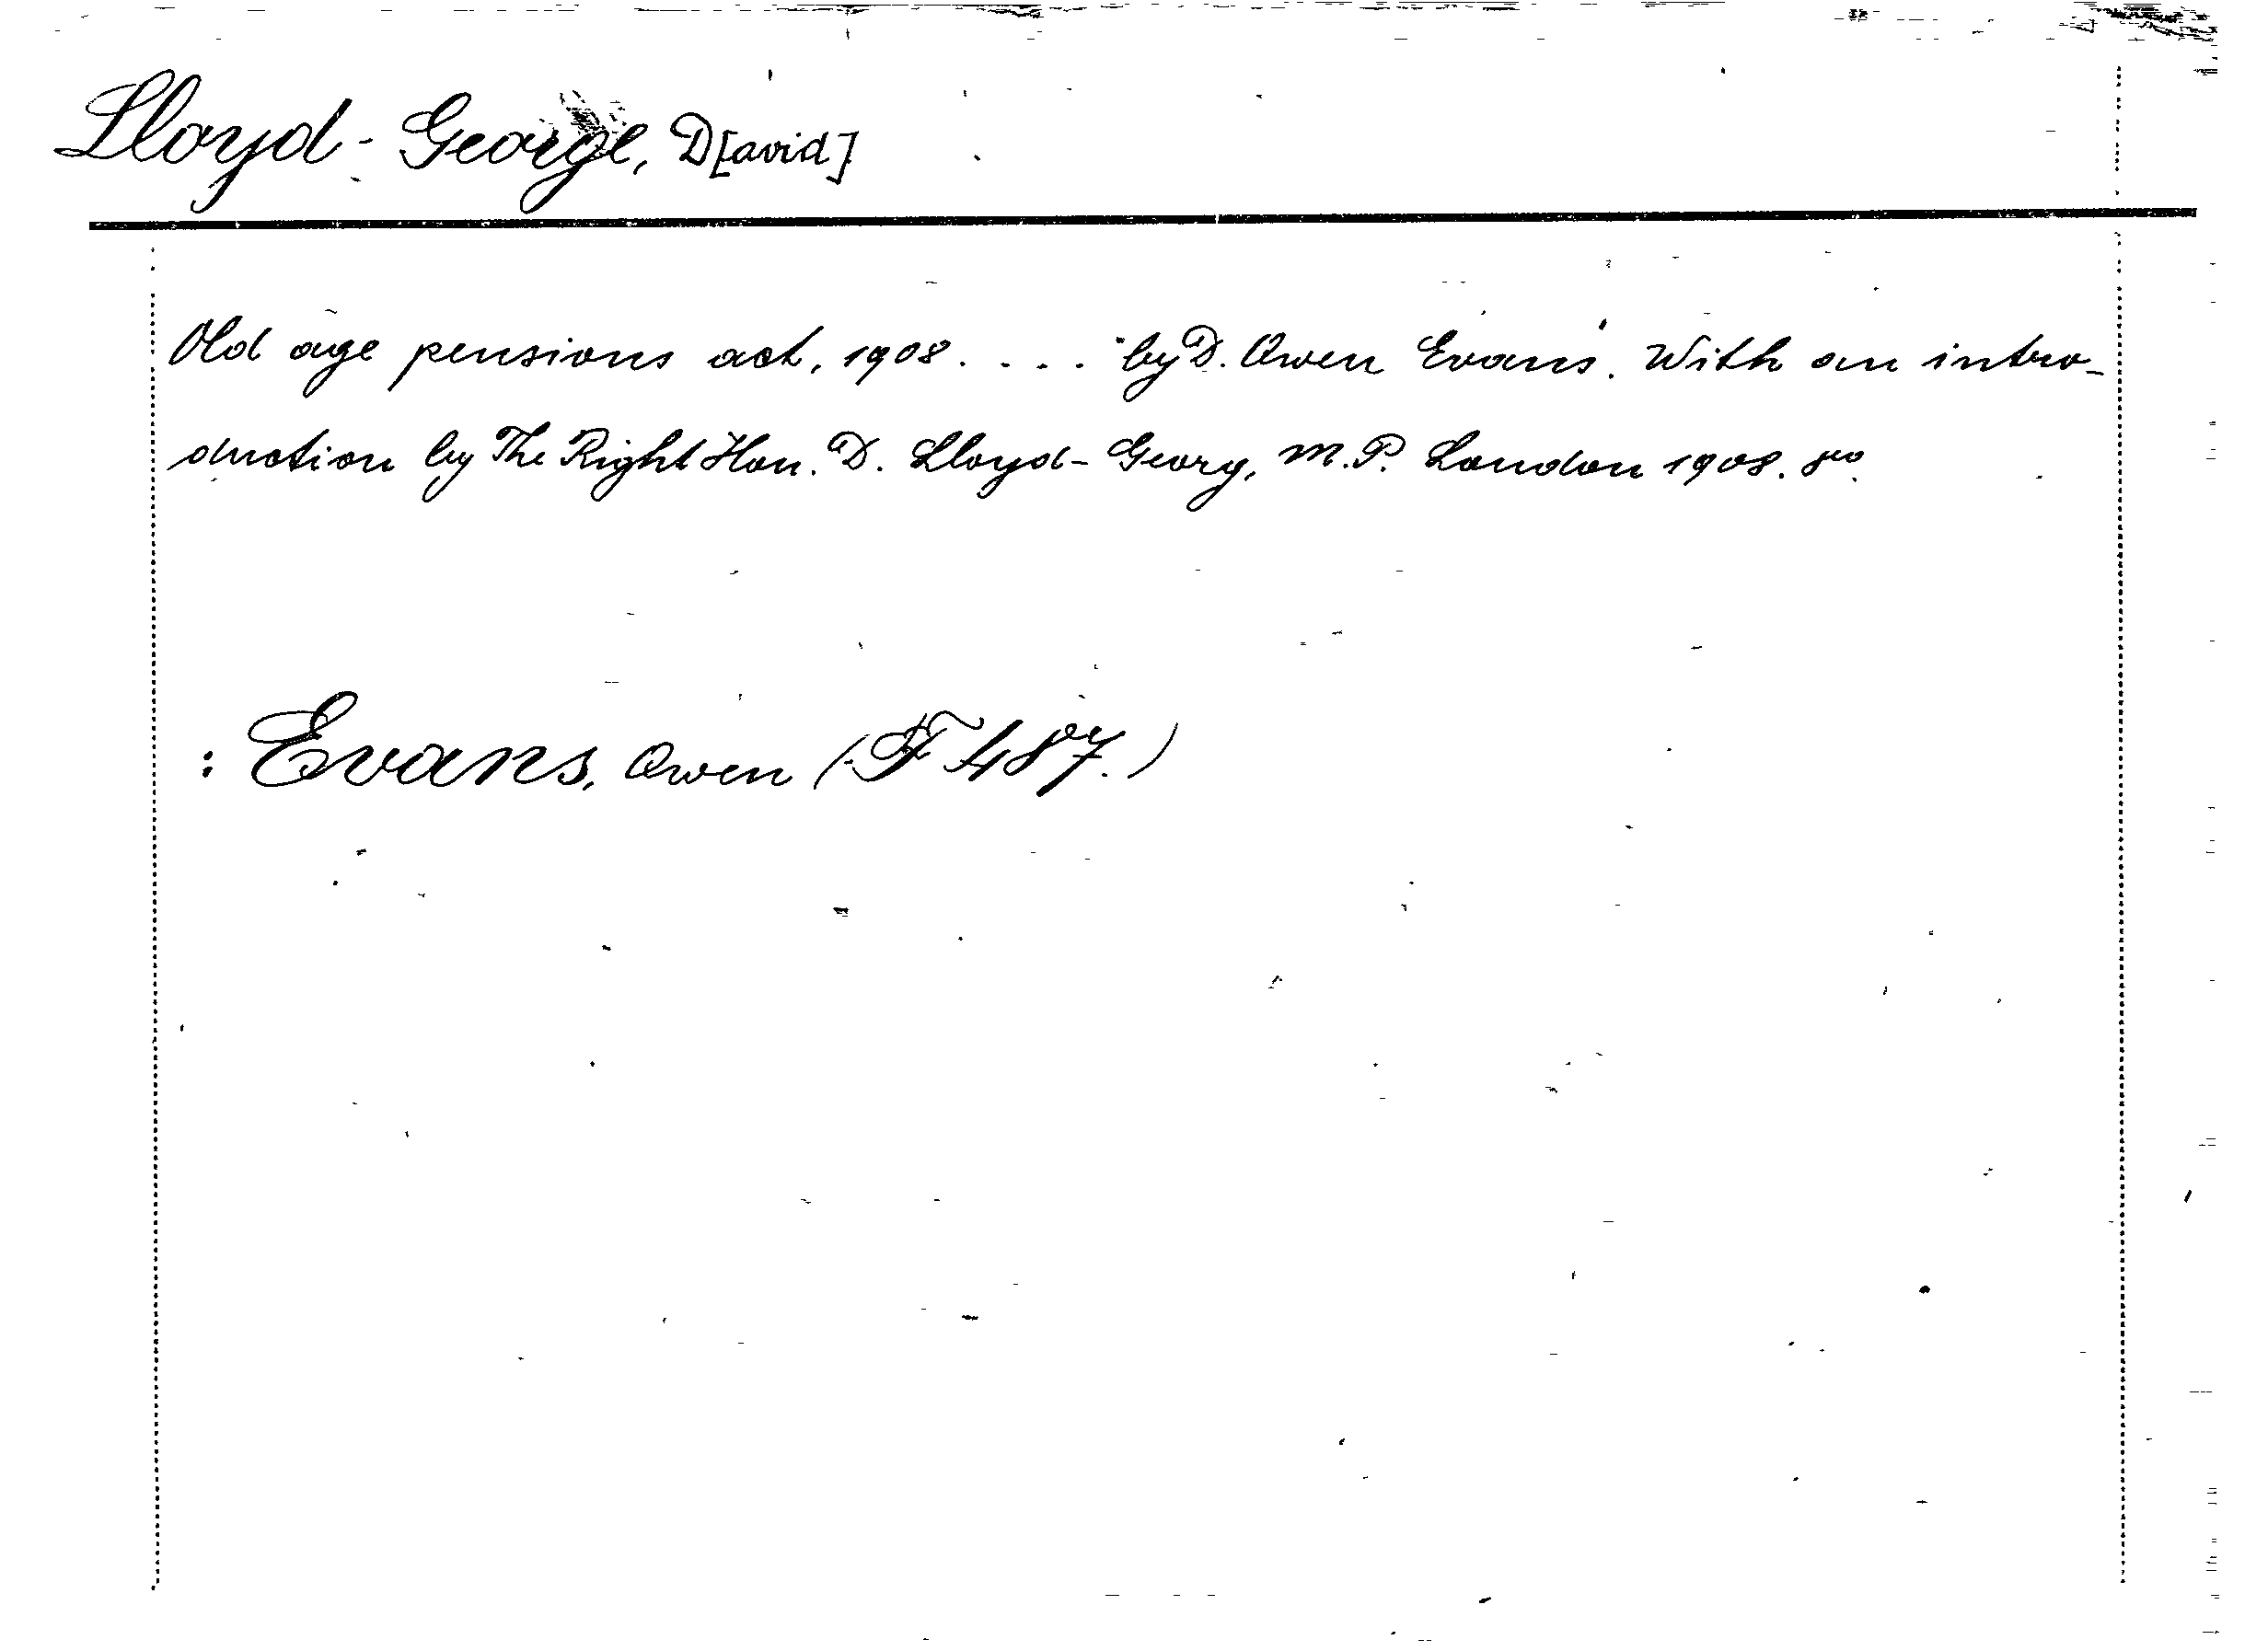 Lloyd-George, D[avid]
Old age pensions act, 1908. . . . by D. Owen Evans. With an intro-
duction by The Right Hon. D. Lloyd-Georg, M.P. London 1908. 8vo.
: Evans, Owen (F 487.)